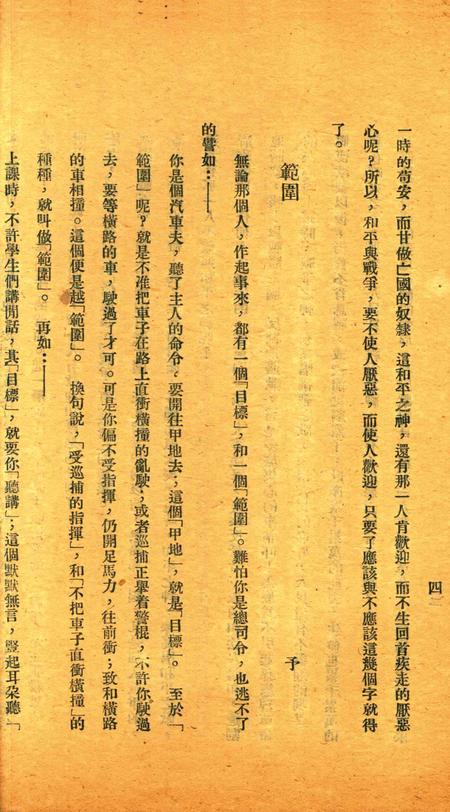 四
一時的苟安，而甘做亡國的奴隸，這和平之神，還有那一人肯歡迎，而不生回首疾走的厭惡
心呢？所以，和平與戰爭，要不使人厭惡，而使人歡迎，只要了應該與不應該這幾個字就得
了。
範圍　予
無論那個人，作起事來，都有一個「目標」，和一個「範圍」。難怕你是總司令，也逃不了
的譬如：——
你是個汽車夫，聽了主人的命令。要開往甲地去；這個「甲地」，就是「目標」。　至於「
範圍」呢？就是不准把車子在路上直衝橫撞的亂駛；或者巡捕正舉着警棍，不許你駛過
去，要等橫路的車，駛過了才可。可是你偏不受指揮，仍開足馬力，往前衝；致和橫路
的車相撞。這個便是越「範圍」。　換句說，「受巡捕的指揮」，和「不把車子直衝橫撞」的
種種，就叫做「範圍」。　再如：——
上課時，不許學生們講閒話，其「目標」，就要你「聽講」；這個默默無言，豎起耳朵聽「